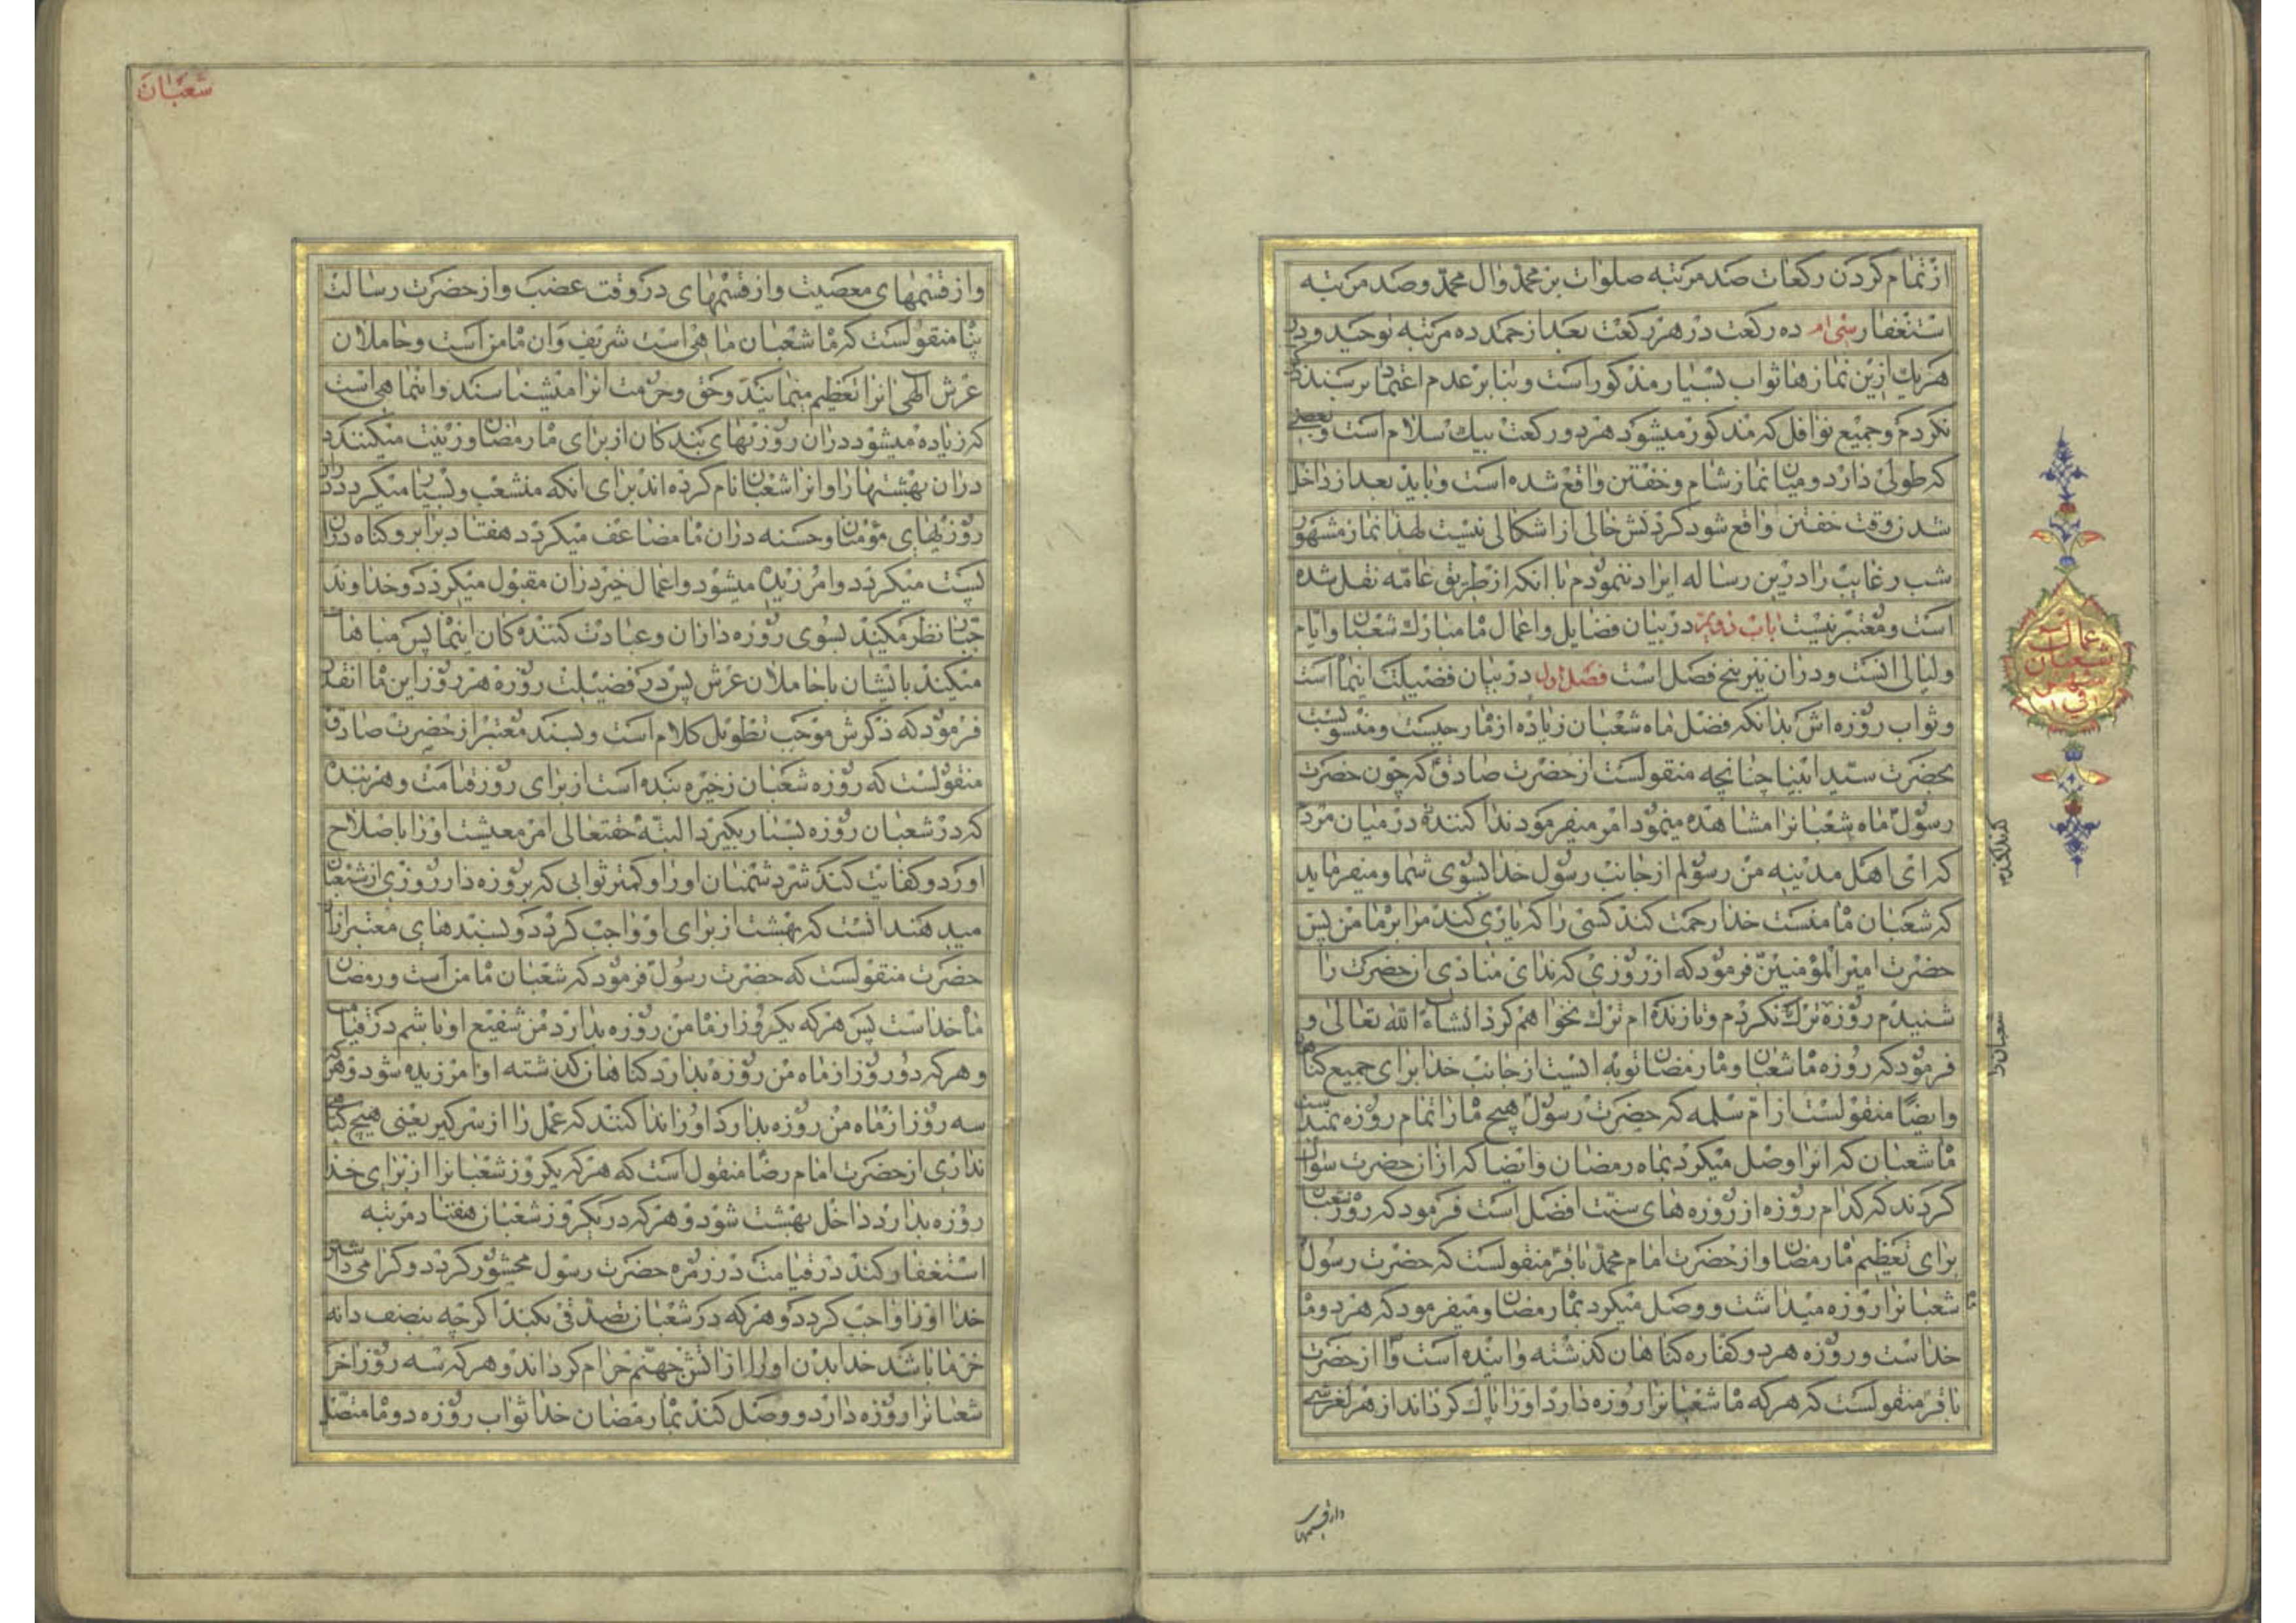 از تمام کردن رکعات صد مرتبه صلوات بر محمد وال محمد وصد مرتبه
استغفار سی ام ده رکعت در هر رکعت بعد از حمد ده مرتبه توحید ودر
هریک ازین نمازها ثواب بسیار مذکور است وبنابر عدم اعتماد بر سند
نکردم وجمیع نوافل که مذکور میشود هر دو رکعت بیک سلام است وبعضی
که طولی دارد ومیان نماز شام وخفتن واقع شده است وباید بعد از داخل
شدن وقت خفتن واقع شود کردنش خالی از اشکالی نیست لهذا نماز مشهور
شب رغایب را درین رساله ایراد ننمودم با انکه از طریق عامه نقل شده
است ومعتبر نیست باب دویم در بیان فضایل واعمال ماه مبارک شعبان وایام
ولیالی انست ودران نیز پنج فصل است فصل اول در بیان فضیلت اینماه است
وثواب روزه اش بدانکه فضل ماه شعبان زیاده از ماه رجبست ومنسوبست
بحضرت سید انبیا چنانچه منقولست از حضرت صادق که چون حضرت
رسول ماه شعبانرا مشاهده مینمود امر میفرمود ندا کننده در میان مردم
که ای اهل مدینه من رسولم از جانب رسول خدا بسوی شما ومیفرماید
که شعبان ماه منست خدا رحمت کند کسی را که یاری کند مرا بر ماه من پس
حضرت امیر المؤمنین فرمود که از روزی که ندای منادی انحضرت را
شنیدم روزه ترک نکردم وتا زنده ام ترک نخواهم کرد انشاء الله تعالی و
فرمود که روزه ماه شعبان وماه رمضان توبه ایست از جانب خدا برای جمیع گناهان
وایضا منقولست از ام سلمه که حضرت رسول هیچ ماه را تمام روزه نمیداشت
ماه شعبان که انرا وصل میکرد بماه رمضان وایضا که ازان حضرت سؤال
کردند که کدام روزه از روزه های سنت افضل است فرمود که روزه شعبان
برای تعظیم ماه رمضان واز حضرت امام محمد باقر منقولست که حضرت رسول
شعبانرا روزه میداشت ووصل میکرد بماه رمضان ومیفرمود که هر دو ماه
خداست وروزه هر دو کفاره گناهان گذشته واینده است واز حضرت
باقر منقولست که هر که ماه شعبانرا روزه دارد اورا پاک گرداند از هر لغزشی
اعمال
شعبان
شعبان را
شعبان
واز قسمهای معصیت واز قسمهای در وقت غضب واز حضرت رسالت
پناه منقولست که ماه شعبان ماهی است شریف وان ماه من است وحاملان
عرش الهی انرا تعظیم مینمایند وحق وحرمت انرا میشناسند واینماهی است
که زیاده میشود دران روزیهای بندگان از برای ماه رمضان وزینت میکنند
دران بهشتها را وانرا شعبان نام کرده اند برای انکه منشعب وبسیار میگردد دران
روزیهای مؤمنان وحسنه دران ماه مضاعف میگردد هفتاد برابر وگناه دران
پست میگردد وامرزیده میشود واعمال خیر دران مقبول میگردد وخداوند
جبار نظر میکند بسوی روزه داران وعبادت کننده گان اینماه پس مباهات
میکند بایشان با حاملان عرش پس در فضیلت روزه هر روز این ماه انقدر
فرمود که ذکرش موجب تطویل کلام است وبسند معتبر از حضرت صادق
منقولست که روزه شعبان ذخیره بنده است از برای روز قیامت وهر بنده
که در شعبان روزه بسیار بگیرد البته حقتعالی امر معیشت اورا باصلاح
اورد وکفایت کند شر دشمنان اورا وکمتر ثوابی که بروزه دار روزی از شعبان
میدهند انست که بهشت از برای او واجب گردد وبسندهای معتبر ازان
حضرت منقولست که حضرت رسول فرمود که شعبان ماه من است ورمضان
ماه خداست پس هر که یکروز از ماه من روزه بدارد من شفیع او باشم در قیامت
وهر که دو روز از ماه من روزه بدارد گناهان گذشته او امرزیده شود وهر که
سه روز از ماه من روزه بدارد اورا ندا کنند که عمل را از سر گیر یعنی هیچ گناه
نداری از حضرت امام رضا منقول است که هر که یکروز شعبانرا از برای خدا
روزه بدارد داخل بهشت شود وهر که در یکروز شعبان هفتاد مرتبه
استغفار کند در قیامت در زمره حضرت رسول محشور گردد وگرامی داشتن
خدا اورا واجب گردد وهر که در شعبان تصدقی بکند اگرچه بنصف دانه
خرما باشد خدا بدن اورا از اتش جهنم حرام گرداند وهر که سه روز اخر
شعبانرا روزه دارد ووصل کند بماه رمضان خدا ثواب روزه دو ماه متصل